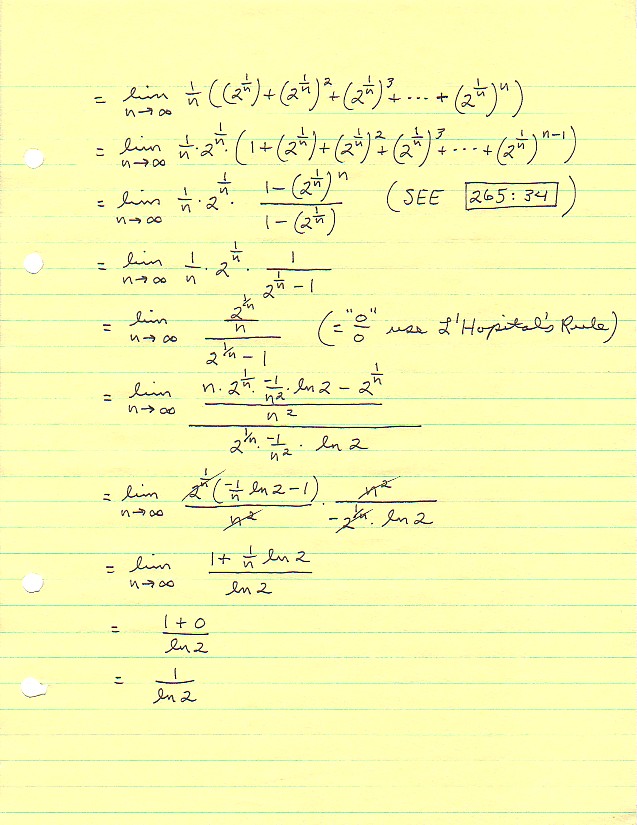 = lim_{n→∞} 1/n ((2^{1/n}) + (2^{1/n})^2 + (2^{1/n})^3 + ··· + (2^{1/n})^n)
= lim_{n→∞} 1/n · 2^{1/n} · (1 + (2^{1/n}) + (2^{1/n})^2 + (2^{1/n})^3 + ··· + (2^{1/n})^{n-1})
= lim_{n→∞} 1/n · 2^{1/n} · (1 - (2^{1/n})^n)/(1 - (2^{1/n})) (SEE 265:34)
= lim_{n→∞} 1/n · 2^{1/n} · 1/(2^{1/n} - 1)
= lim_{n→∞} (2^{1/n}/n)/(2^{1/n} - 1) (= "0/0" use L'Hopital's Rule)
= lim_{n→∞} ((n · 2^{1/n} · -1/n^2 · ln 2 - 2^{1/n})/n^2)/(2^{1/n} · -1/n^2 · ln 2)
= lim_{n→∞} (2^{1/n}(-1/n ln 2 - 1))/n^2 · n^2/(-2^{1/n} · ln 2)
= lim_{n→∞} (1 + 1/n ln 2)/(ln 2)
= (1 + 0)/(ln 2)
= 1/(ln 2)